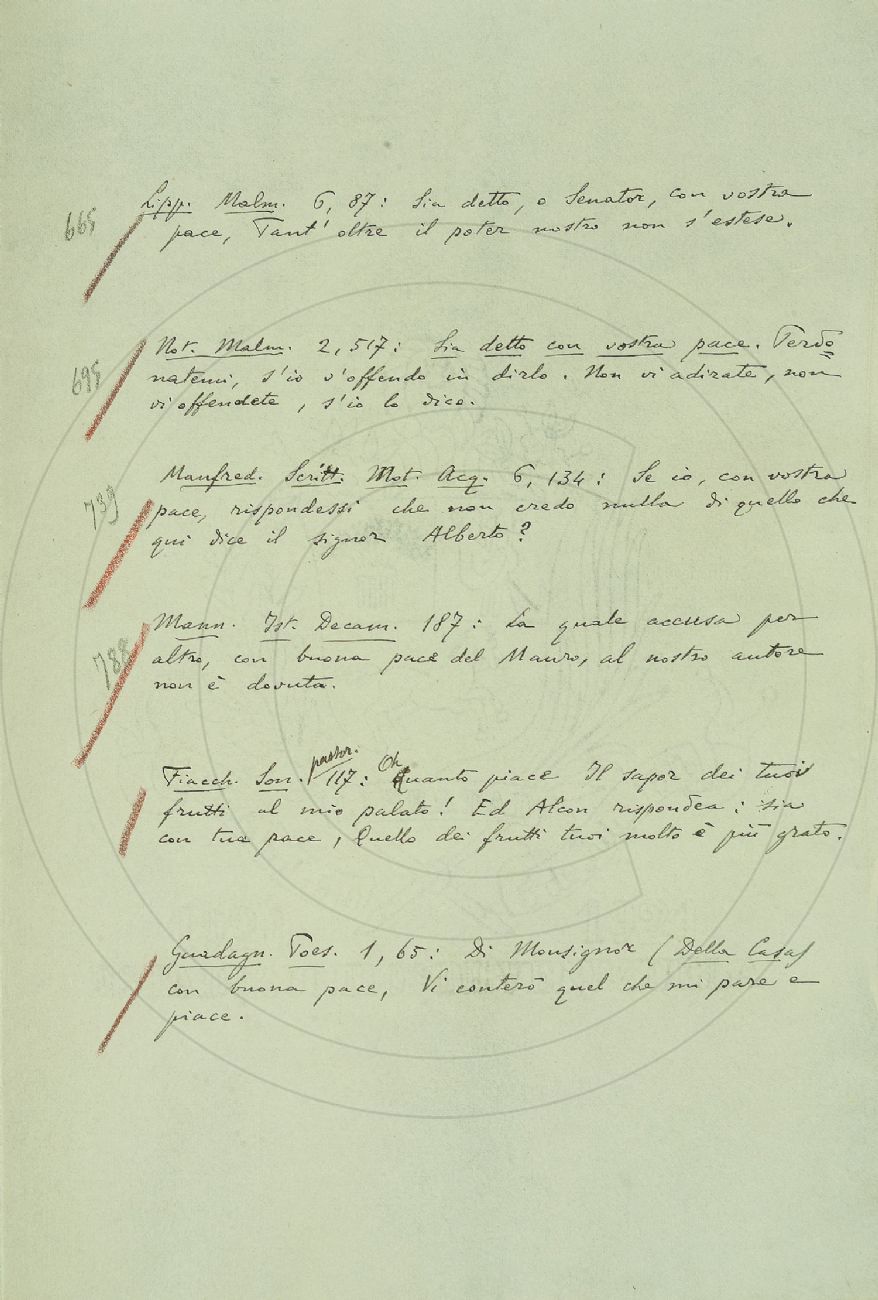 665
Lipp. Malm. 6, 87: Sia detto, o Senator, con vostra
pace, Tant' oltre il poter nostro non s'estese.
695
Not. Malm. 2, 517: Sia detto con vostra pace. Perdo=
natemi, s'io v'offendo in dirlo. Non vi adirate, non
vi offendete, s'io lo dico.
739
Manfred. Scritt. Mot. Acq. 6, 134: Se io, con vostra
pace, rispondessi che non credo nulla di quello che
qui dice il signor Alberto?
788
Mann. Ist. Decam. 187: La quale accusa per
altro, con buona pace del Mauro, al nostro autore
non è dovuta.
Fiacch. Son. pastor. 117: Oh quanto piace Il sapor dei tuoi
frutti al mio palato! Ed Alcon rispondea: sia
con tua pace, Quello dei frutti tuoi molto è più grato.
Guadagn. Poes. 1, 65: Di Monsignor (Della Casa)
con buona pace, Vi conterò quel che mi pare e
piace.